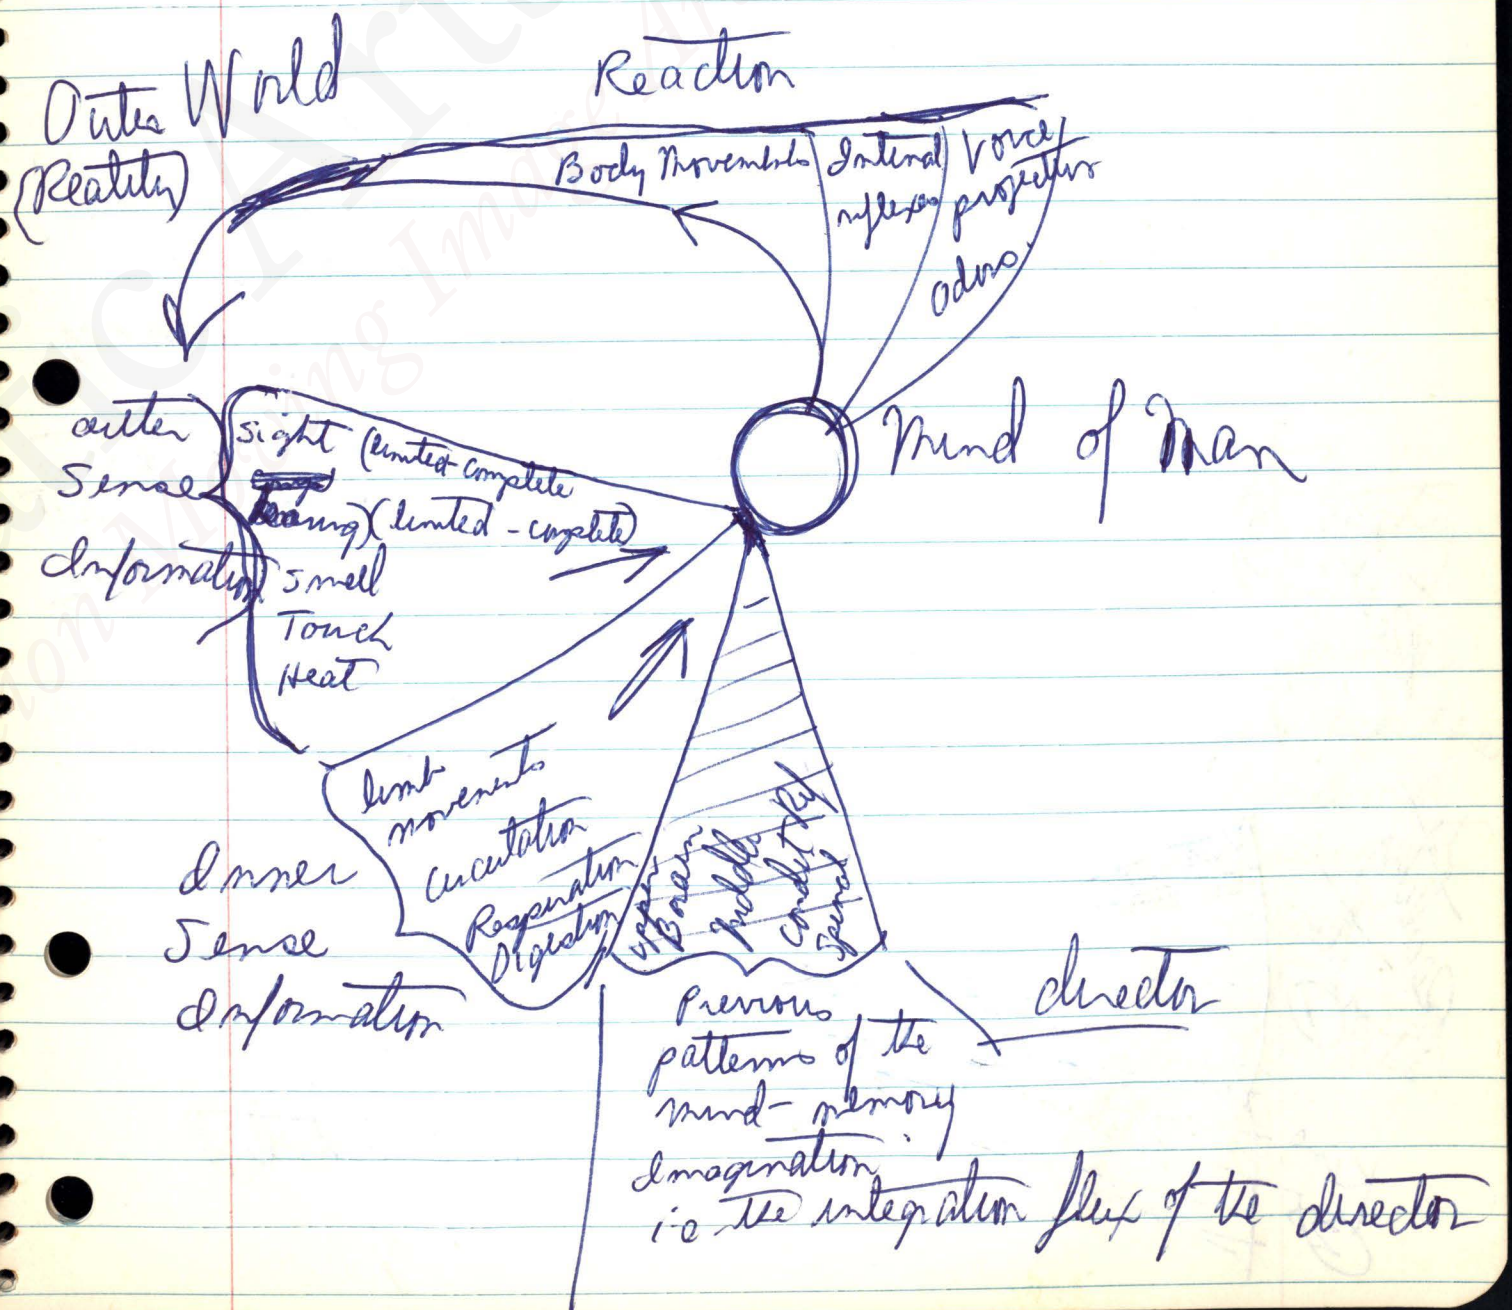 Outer World
(Reality)
Reaction
Body Movements
Internal
reflexes
Voice
projection
odors
Mind of Man
outer
Sense
Information
Sight (limited-complete
Hearing) (limited - complete)
Smell
Touch
Heat
limb
movements
Circulation
Respiration
Digestion
Inner
Sense
Information
upper
Brain
Middle
condit Ref
Spinal
director
Previous
patterns of the
mind - memory
Imagination
ie the integration flux of the director